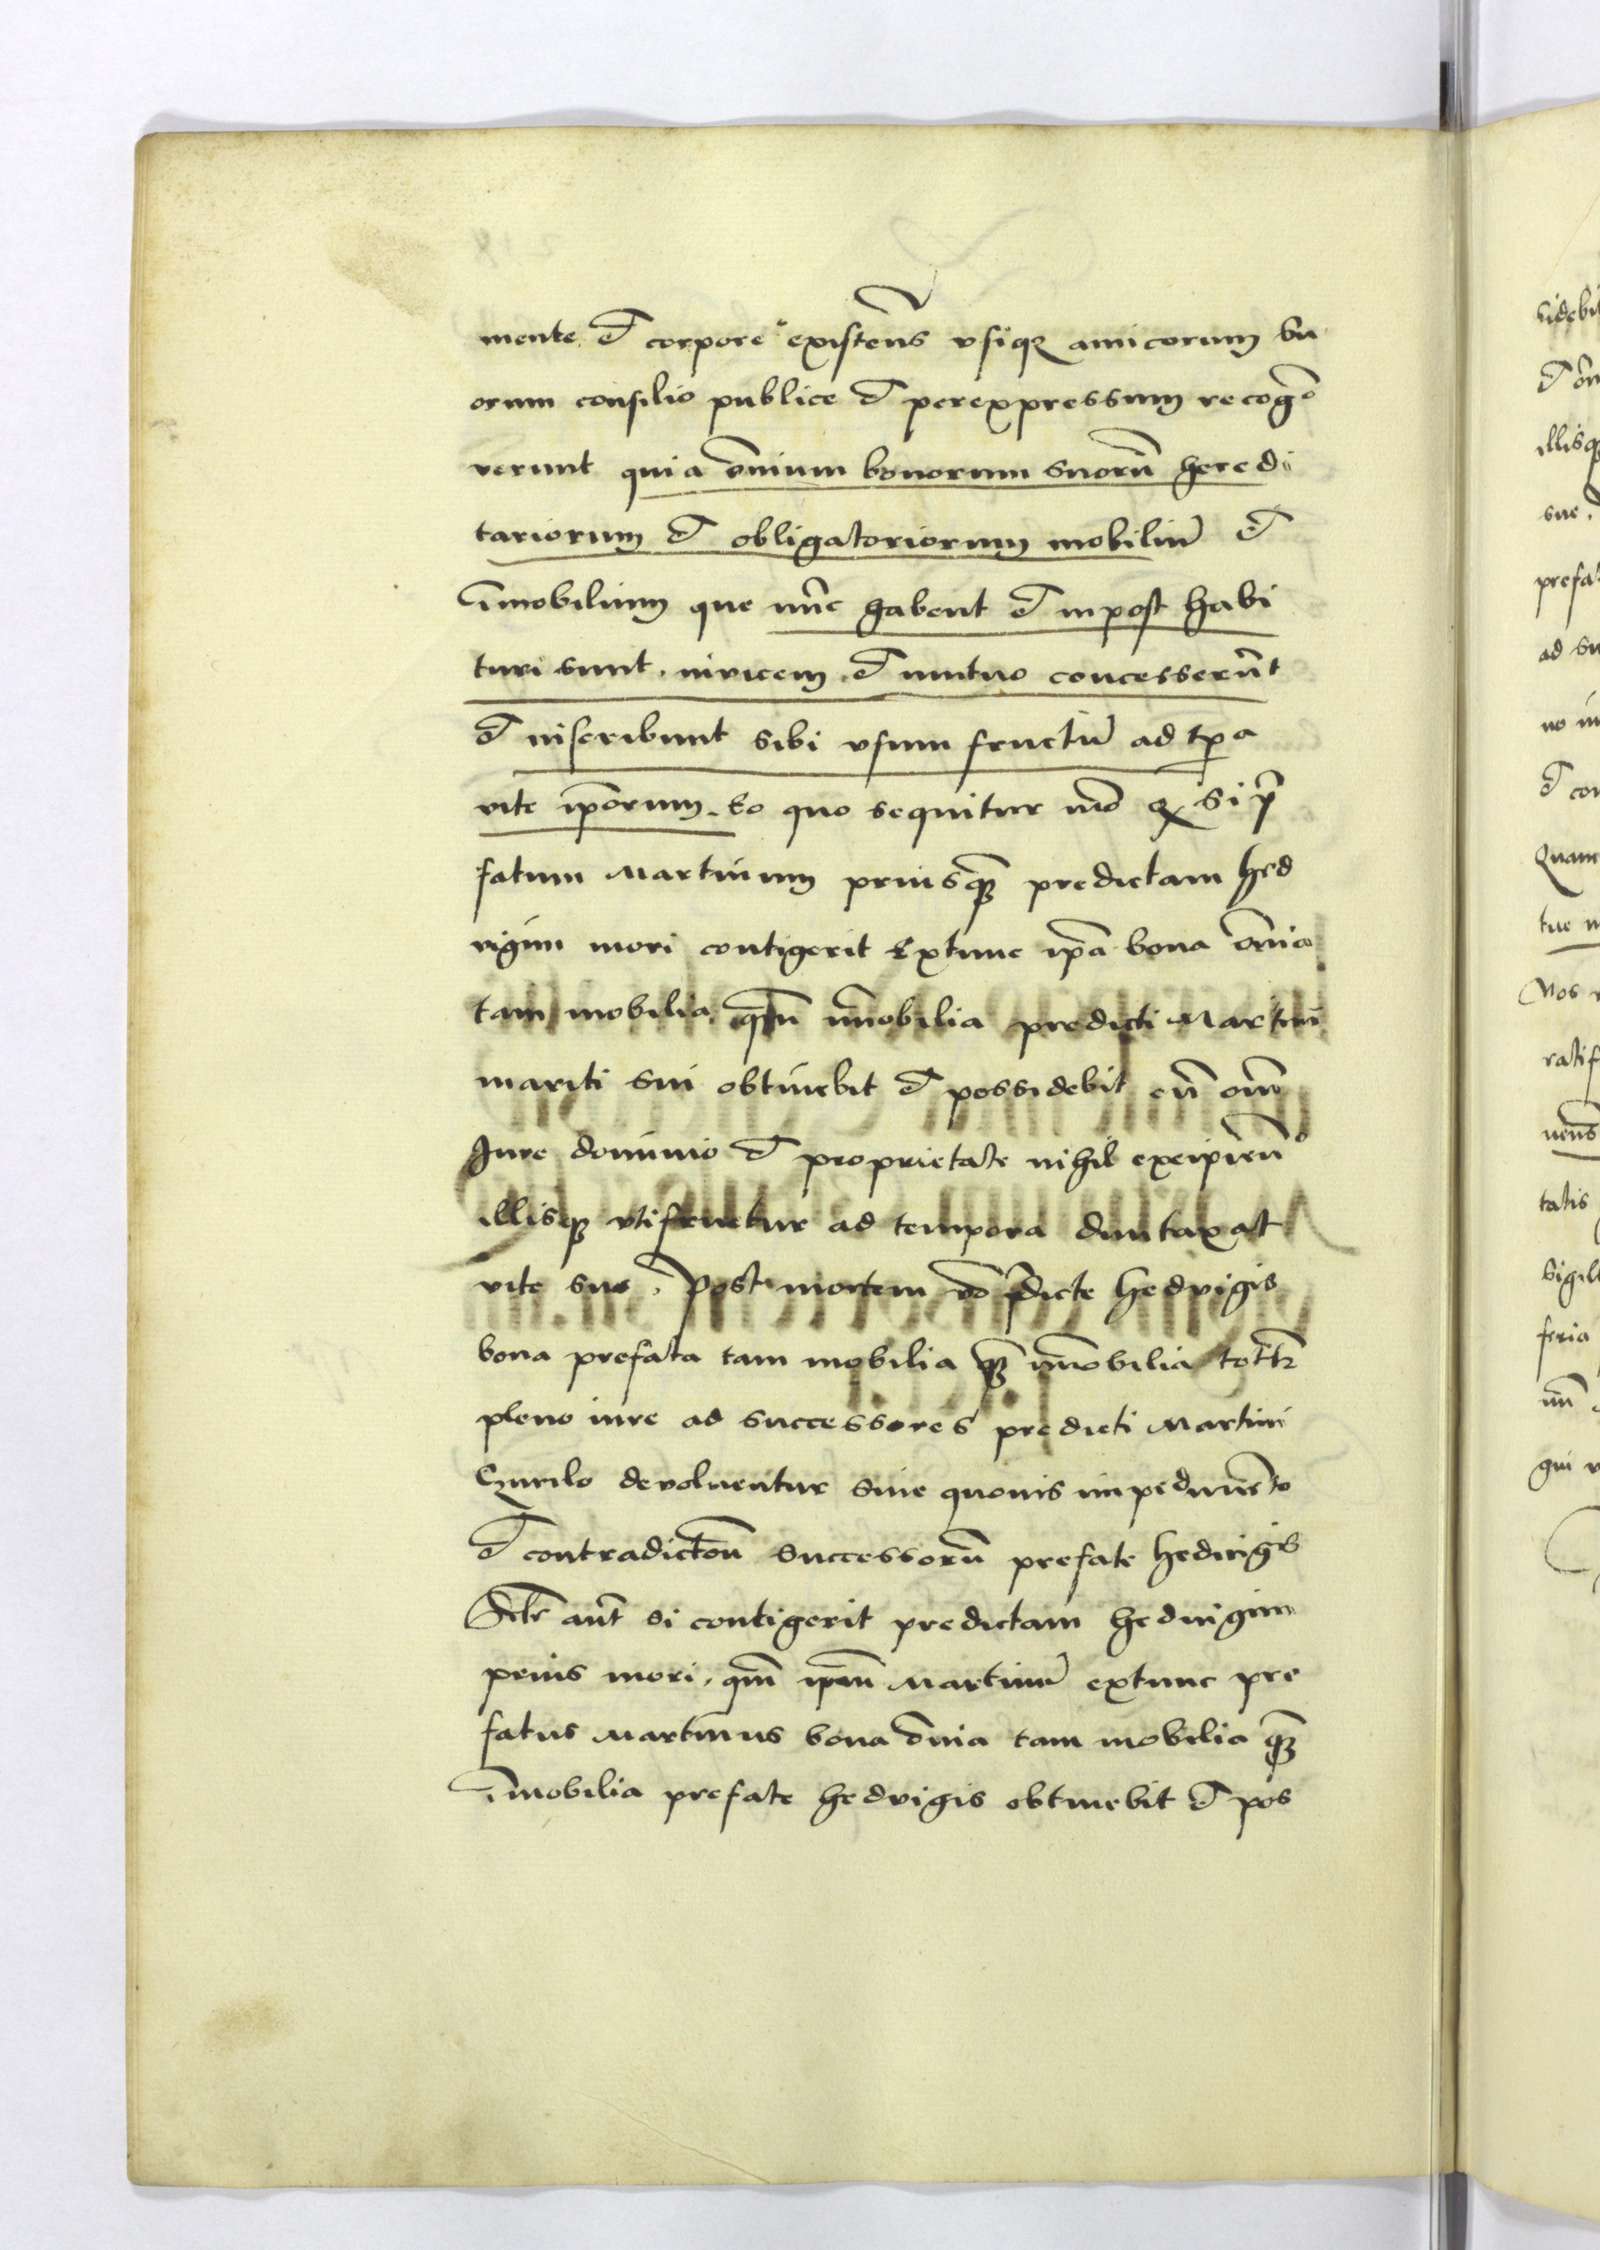 mente et corpore existens vsique amicorum su
orum consilio publice et perexpressum recogno
verunt quia omnium bonorum suorum heredi
tariorum et obligatoriorum mobilium et
immobilium que nunc habent et inpost habi
turi sunt. invicem et mutuo concesserunt
et inscribunt sibi vsum fructum ad tpa
vite ipsorum. Eo quo sequitur modo quod Si pre
fatum Martinum priusquam predictam hed
vigim mori contigerit Extunc ipsa bona omnia
tam mobilia quam immobilia predicti Martini
mariti sui obtinebit et possidebit cum omni
Iure dominio et proprietate nihil excipiendo
illisque vtifruetur ad tempora duntaxat
vite sue. Post mortem vero predicte hedvigis
bona prefata tam mobilia quam immobilia
pleno iure ad successores predicti Martini
devoluentur sine quouis impedimento
et contradictione successorum prefate hedvigis
autem si contigerit predictam hedvigim
prius mori. quam ipsum Martinum extunc pre
fatus Martinus bona omnia tam mobilia quam
immobilia prefate hedvigis obtinebit et pos